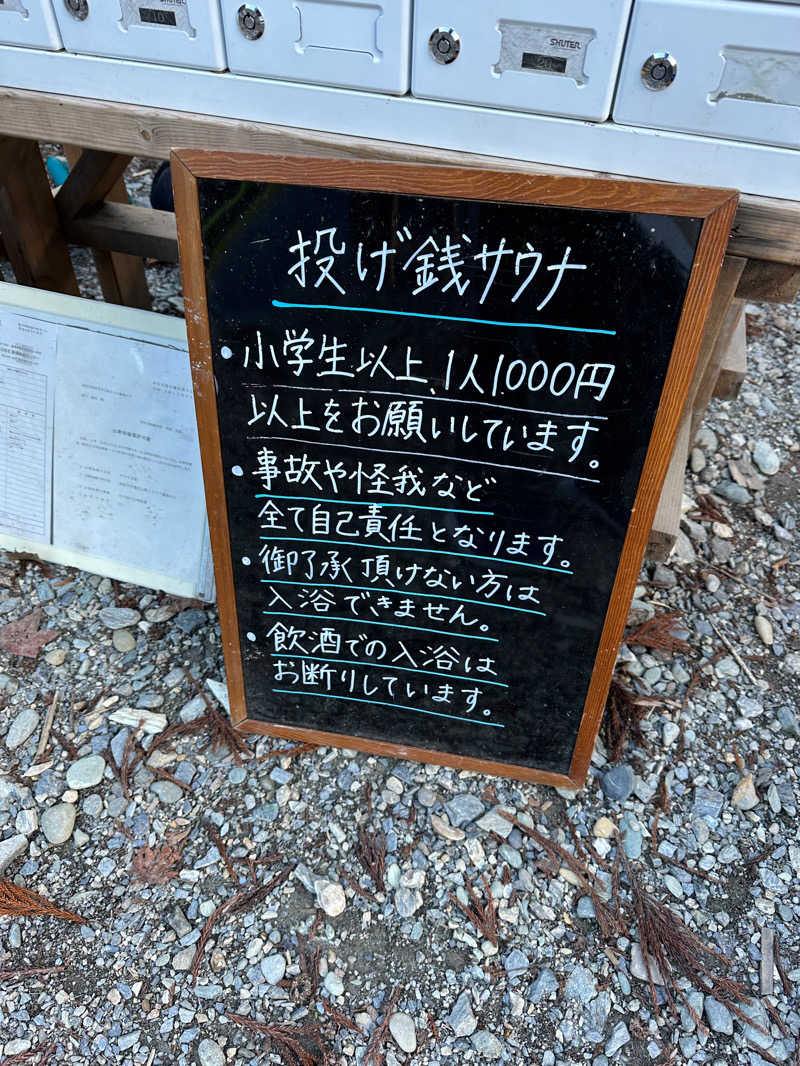 SHUTER
投げ銭サウナ
・小学生以上、1人1000円
以上をお願いしています。
・事故や怪我など
全て自己責任となります。
・御了承頂けない方は
入浴できません。
・飲酒での入浴は
お断りしています。